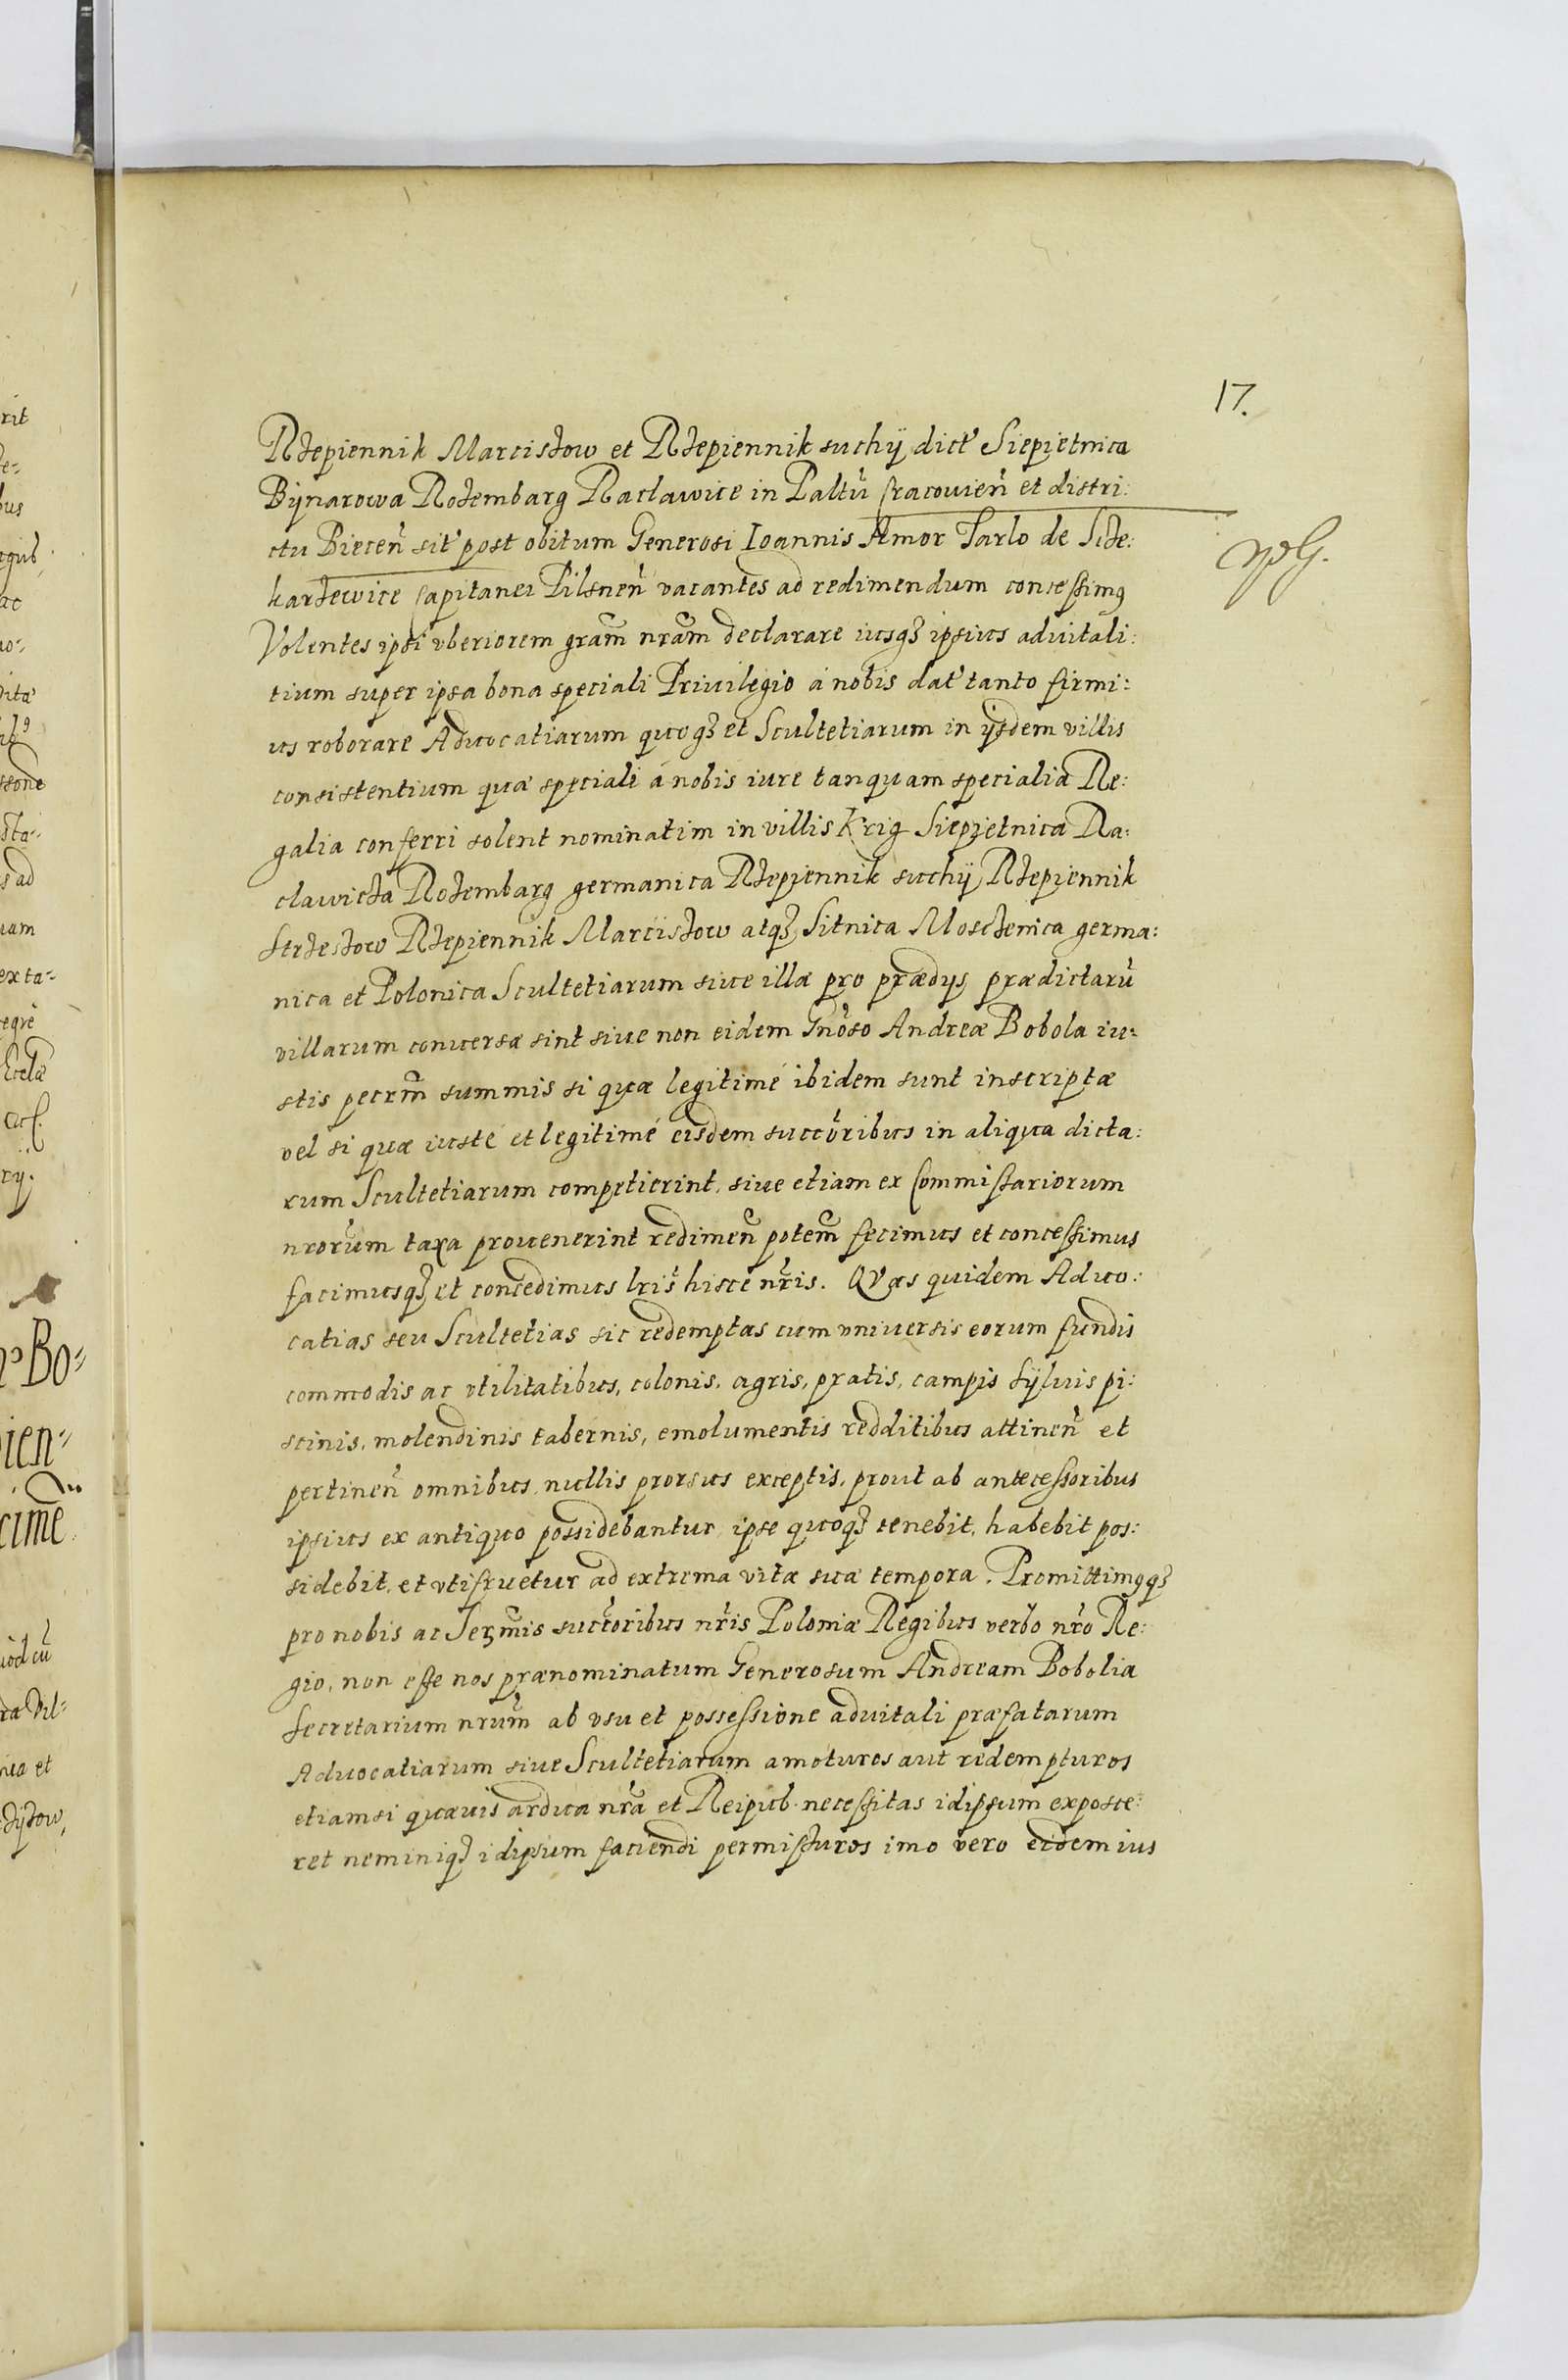 17.
Rzepiennik Marciszow et Rzepiennik suchÿ dict' Siepietnica
Bÿnarowa Rozembarg Raclawice in Paltũ Cracouień et distri:
ctu Bieceń sit' post obitum Generosi Ioannis Amor Tarlo de Scze:
karzewice Capitanei Pilsneń vacantes ad redimendum concessimꝯ
Volentes ipsi vberiorem gram̃ nram̃ declarare iusqȝ ipsius aduitali:
tium super ipsa bona speciali Priuilegio á nobis dat' tanto firmi:
us roborare Aduocatiarum quoqȝ et Scultetiarum in ijsdem villis
consistentium quæ speciali á nobis iure tanquam specialia Re:
galia conferri solent nominatim in villis Krig Siepietnica Ra:
clawicza Rozembarg germanica Rzepiennik suchÿ Rzepiennik
Strzeszow Rzepiennik Marciszow atqȝ Sitnica Moszczenica germa:
nica et Polonica Scultetiarum siue illæ pro prædijs prædictarũ
villarum conuersæ sint siue non eidem Gnoso Andreæ Bobola iu:
stis pecrm̃ summis si quæ legitimé ibidem sunt inscriptæ
vel si quæ iusté et legitimé eisdem succoribus in aliqua dicta:
rum Scultetiarum competierint, siue etiam ex Commissariorum
nrorum taxa prouenerint redimeñ potem̃ fecimus et concessimus
facimusqȝ et concedimus lris hisce nris. QVas quidem Aduo:
catias seu Scultetias sic redemptas cum vniuersis eorum fundis
commodis ac vtilitatibus, colonis, agris, pratis, campis sÿluis pi:
scinis, molendinis tabernis, emolumentis redditibus attineń et
pertineń omnibus, nullis prorsus exceptis, prout ab antecessoribus
ipsius ex antiquo possidebantur ipse quoqȝ tenebit, habebit pos:
sidebit, et vtifruetur ad extrema vitæ suæ tempora. Promittimꝯqȝ
pro nobis ac Serm̃is succoribus nris Poloniæ Regibus verbo nro Re:
gio, non esse nos prænominatum Generosum Andream Bobolia
Secretarium nrum̃ ab vsu et possessione aduitali præfatarum
Aduocatiarum siue Scultetiarum amoturos aut redempturos
etiamsi quæuis ardua nra et Reipub. necessitas idipsum exposce:
ret neminiqȝ idipsum faciendi permissuros imo vero eidem ius